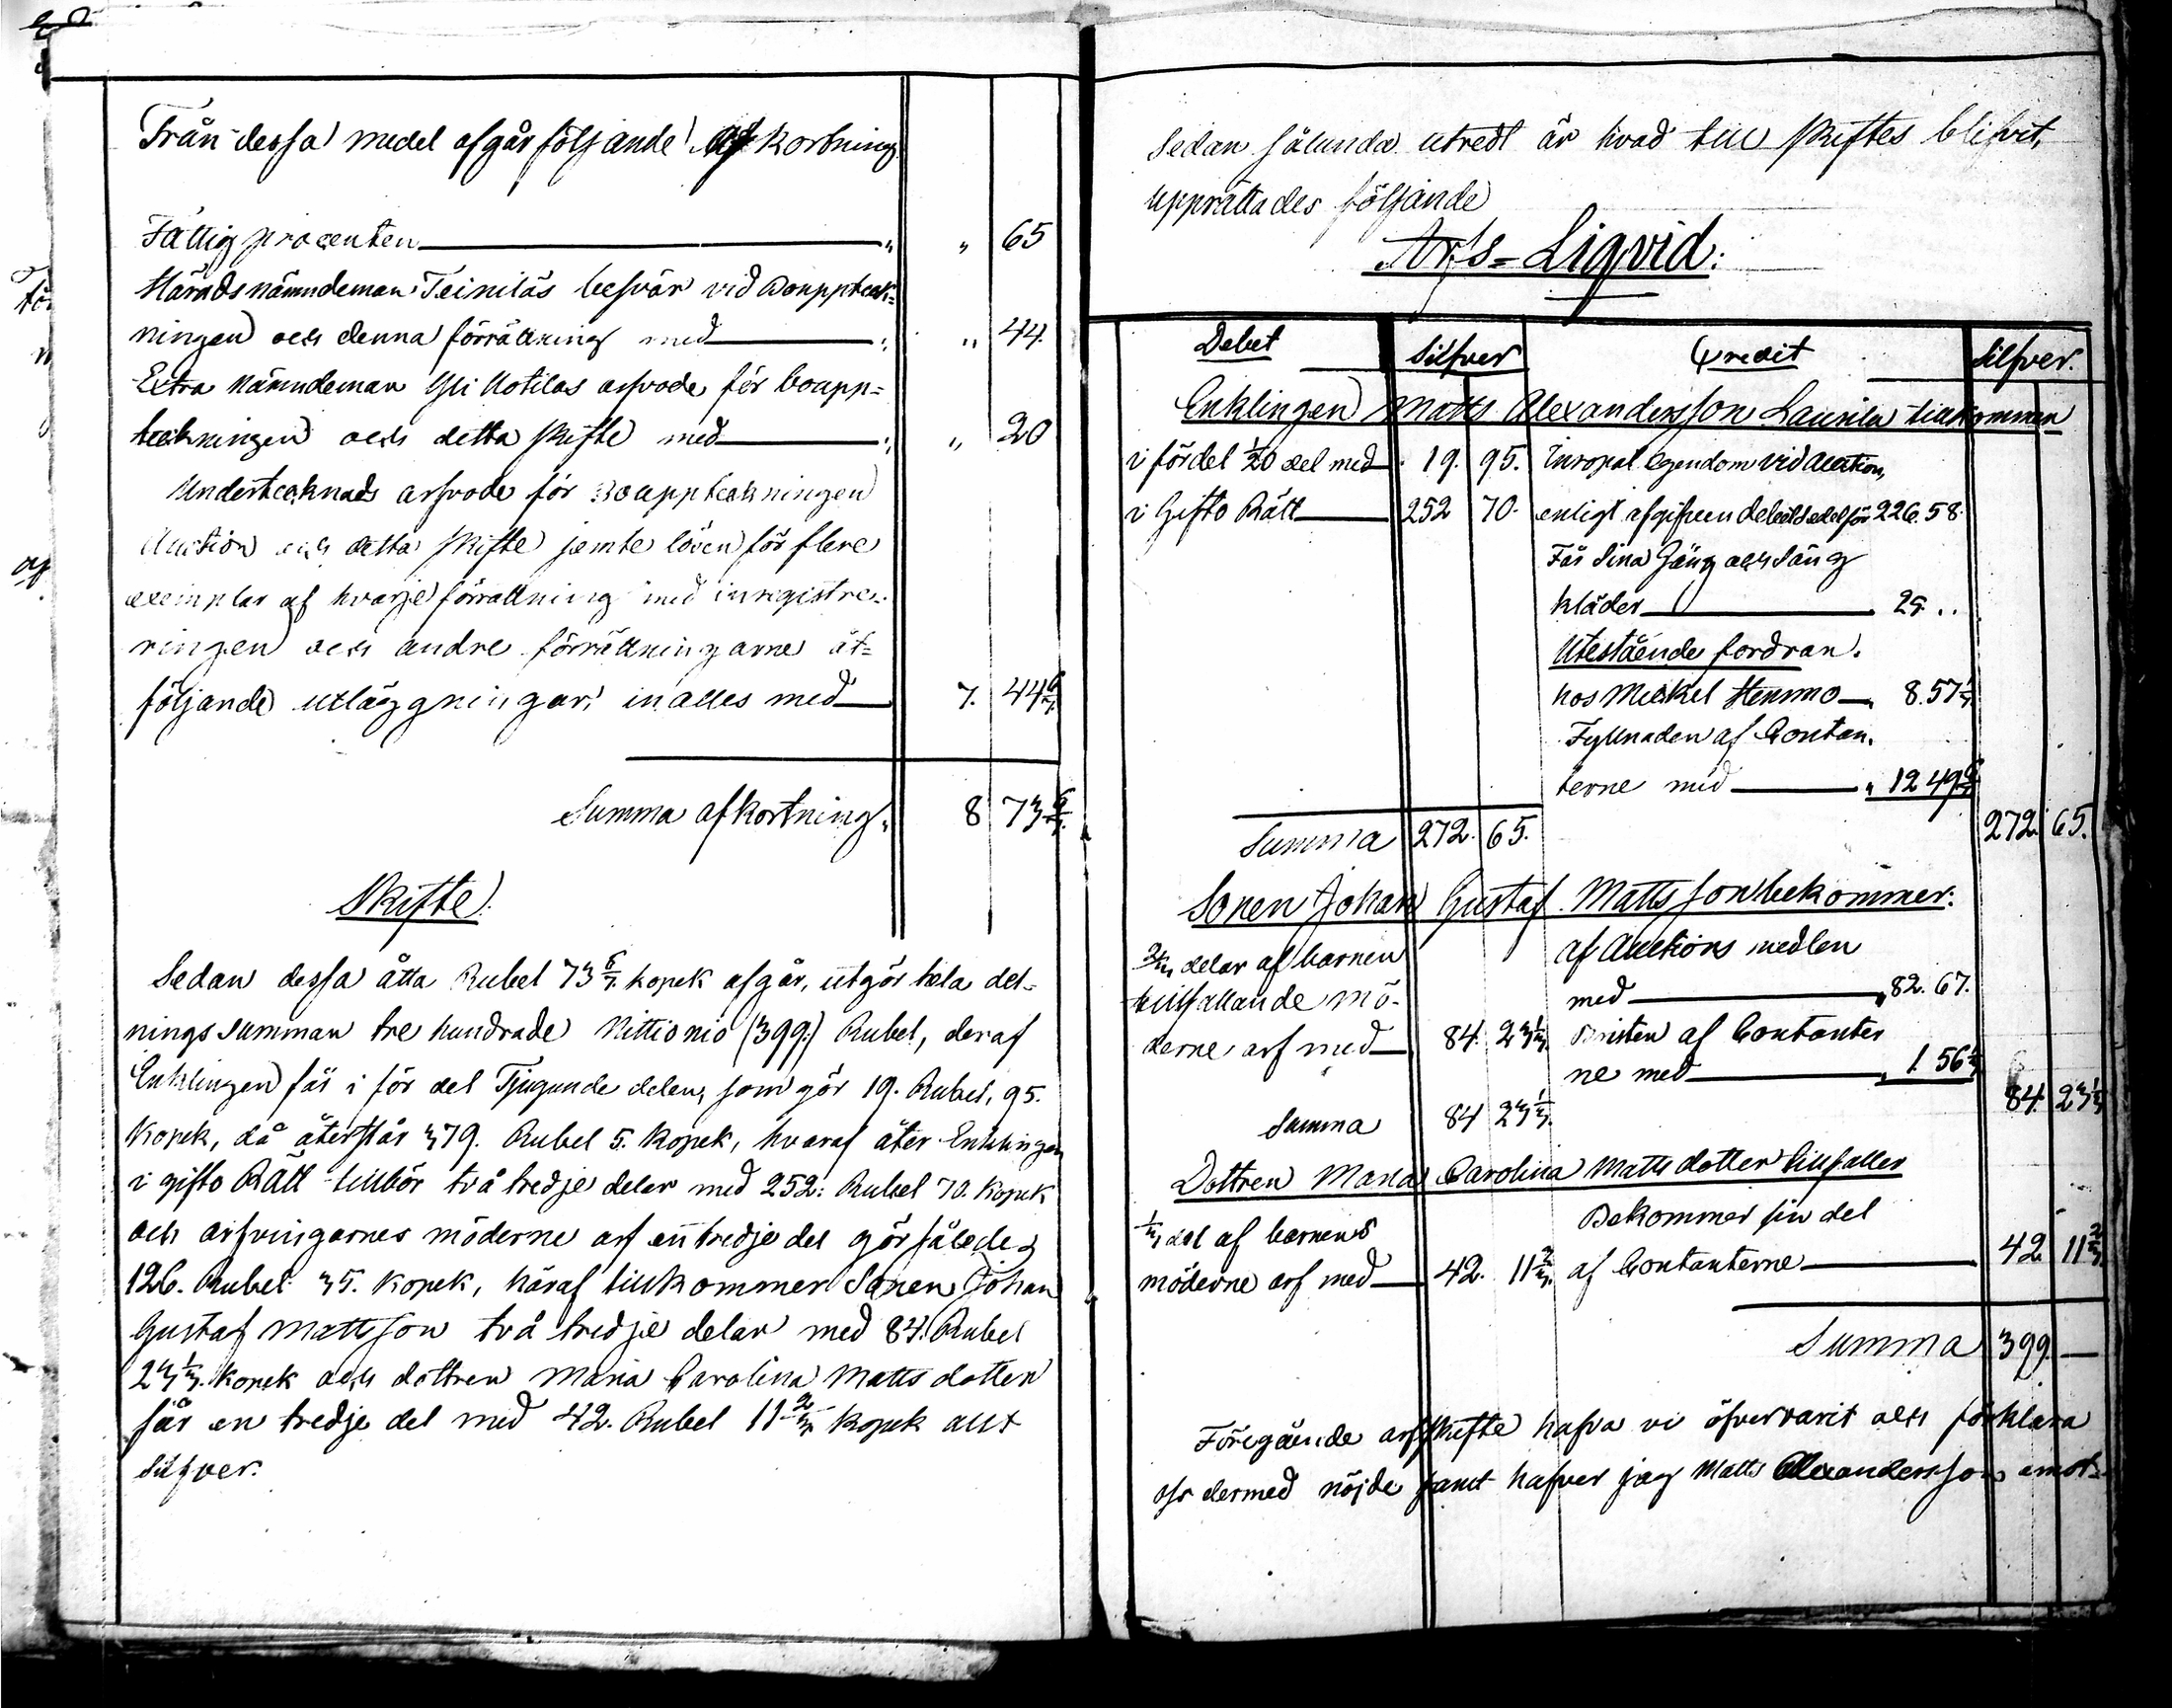 Från dessa medel afgår följande Afkortning
Fattig procenten " " 65
Häradsnämndeman Teiniläs besvär vid Bouppteck=
ningen och denna förrättning med " 44.
Extra Nämndeman Uotilas arfvode för boupp=
teckningen och detta skifte med " 20
Undertecknads arfvode för Bouppteckningen
Auction och detta skifte jemte lösen för flere
exemplar af hvarje förrättning med inregistre=
ringen och andre förrättningarne åt=
följande utläggningar, inalles med 7. 44 6/7
Summa afkortning 8 73 6/7.
Skifte.
Sedan dessa åtta Rubel 73 6/7 kopek afgår, utgör hela del=
nings summan tre hundrade Nittionio (399.) Rubel, deraf
Enklingen får i för del Tjugunde delen, som gör 19. Rubel, 95.
Kopek, då återstår 379. Rubel 5. Kopek, hvaraf åter Enklingen
i gifto Rätt tillhör två tredje delar med 252: Rubel 70. Kopek
och arfvingarnes möderne arf en tredje del gör således
126. Rubel 35. Kopek, häraf tillkommer Sonen Johan
Gustaf Mattsson två tredje delar med 84. Rubel
23 1/3. Kopek och dottren Maria Carolina Matts dotter
får en tredje del med 42. Rubel 11 2/3 Kopek allt
Silfver.
Sedan sålunda utredt är hvad till skiftes blifvit,
upprättades följande
Arfs=Liqvid:
Debet Silfver Credit Silfver.
Enklingen Matts Alexandersson Laurila tillkommer
i fördel 1/20 del med 19. 95. Inropat egendom vid Auction,
i Gifto Rätt 252 70. enligt afgifven debetsedel för 226.58.
Får sina Gång och Säng
kläder 25. ..
Utestående fordran.
hos Mickel Hemmo 8.57 1/7
Fyllnaden af Contan.
terne med " 12 49 6/7
Summa 272. 65. 272. 65.
Sonen Johan Gustaf Mattsson bekommer.
2/3 delar af barnen af Auctions medlen
tillfallande mö- med 82. 67.
derne arf med 84. 23 1/3. Bristen af Contanter
ne med 1. 56 1/3
Summa 84 23 1/3. 84. 23 1/3
Dottren Maria Carolina Matts dotter tillfaller
1/3 del af barnens Bekommer sin del
möderne arf med 42. 11 2/3. af Contanterne 42 11 2/3
Summa 399. —
Föregående arfskifte hafva vi öfvervarit och förklara
oss dermed nöjde samt hafver jag Matts Alexandersson emot=